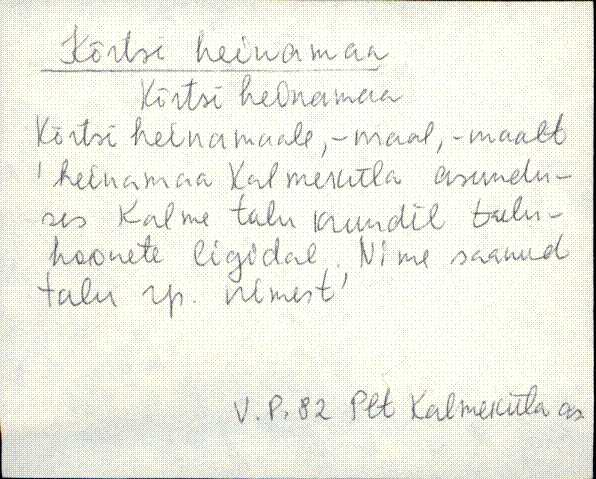 Kõrtsi heinamaa
Kõrtsi heinamaa
Kõrtsi heinamaale, -maal, -maalt
'heinamaa Kalmeküla asundu-
ses Kalme talu krundil talu-
hoonete ligidal. Nime saanud
talu rp. nimest'
V.P. 82 Plt Kalmeküla as